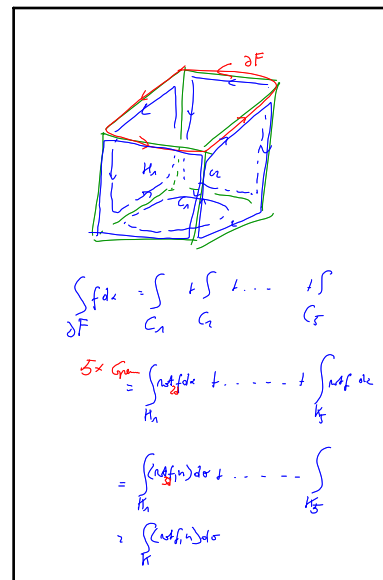 ∂F
H₁ C₂
C₁
∫_{∂F} f dx = ∫_{C₁} + ∫_{C₂} + .... + ∫_{C₅}
5×
= ∫_{H₁} rot₂ f dx + ..... + ∫_{H₅} rot f dx
= ∫_{H₁} (rot f, n) dσ + ..... ∫_{H₅}
= ∫_K (rot f, n) dσ